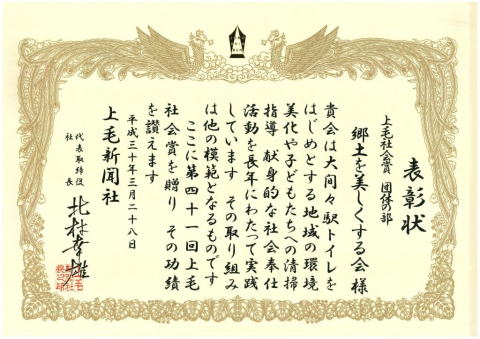 表彰状
上毛社会賞 団体の部
郷土を美しくする会 様
貴会は大間々駅トイレを
はじめとする地域の環境
美化や子どもたちへの清掃
指導 献身的な社会奉仕
活動を長年にわたって実践
しています その取り組み
は他の模範となるものです
ここに第四十一回上毛
社会賞を贈り その功績
を讃えます
平成三十年三月二十八日
上毛新聞社
代表取締役
社長
北村幸雄